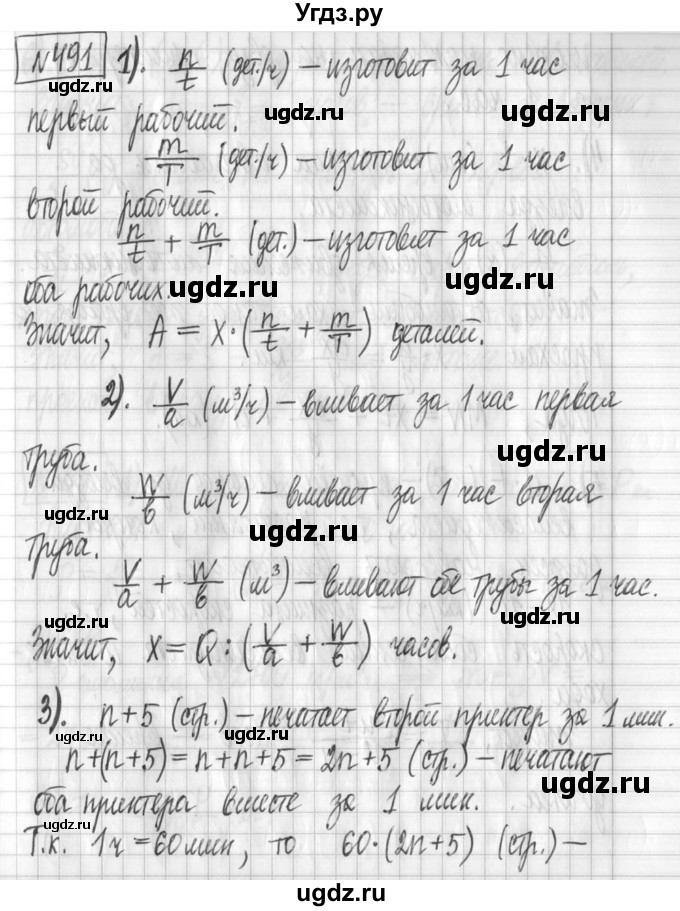 Угдз.ру
№491 1). n/t (дет./ч) – изготовит за 1 час
ugdz.ru ugdz.ru ugdz.ru
первый рабочий.
m/T (дет./ч) – изготовит за 1 час
второй рабочий.
n/t + m/T (дет.) – изготовят за 1 час
оба рабочих.
ugdz.ru ugdz.ru
Значит, A = x·(n/t + m/T) деталей.
2). V/a (м³/ч) – вливает за 1 час первая
ugdz.ru
труба.
W/b (м³/ч) – вливает за 1 час вторая
ugdz.ru ugdz.ru
труба.
V/a + W/b (м³) – вливают обе трубы за 1 час.
Значит, x = Q : (V/a + W/b) часов.
ugdz.ru ugdz.ru ugdz.ru
3). n+5 (стр.) – печатает второй принтер за 1 мин.
ugdz.ru ugdz.ru
n+(n+5) = n+n+5 = 2n+5 (стр.) – печатают
ugdz.ru
оба принтера вместе за 1 мин.
ugdz.ru
Т.к. 1ч = 60 мин, то 60·(2n+5) (стр.) –
ugdz.ru